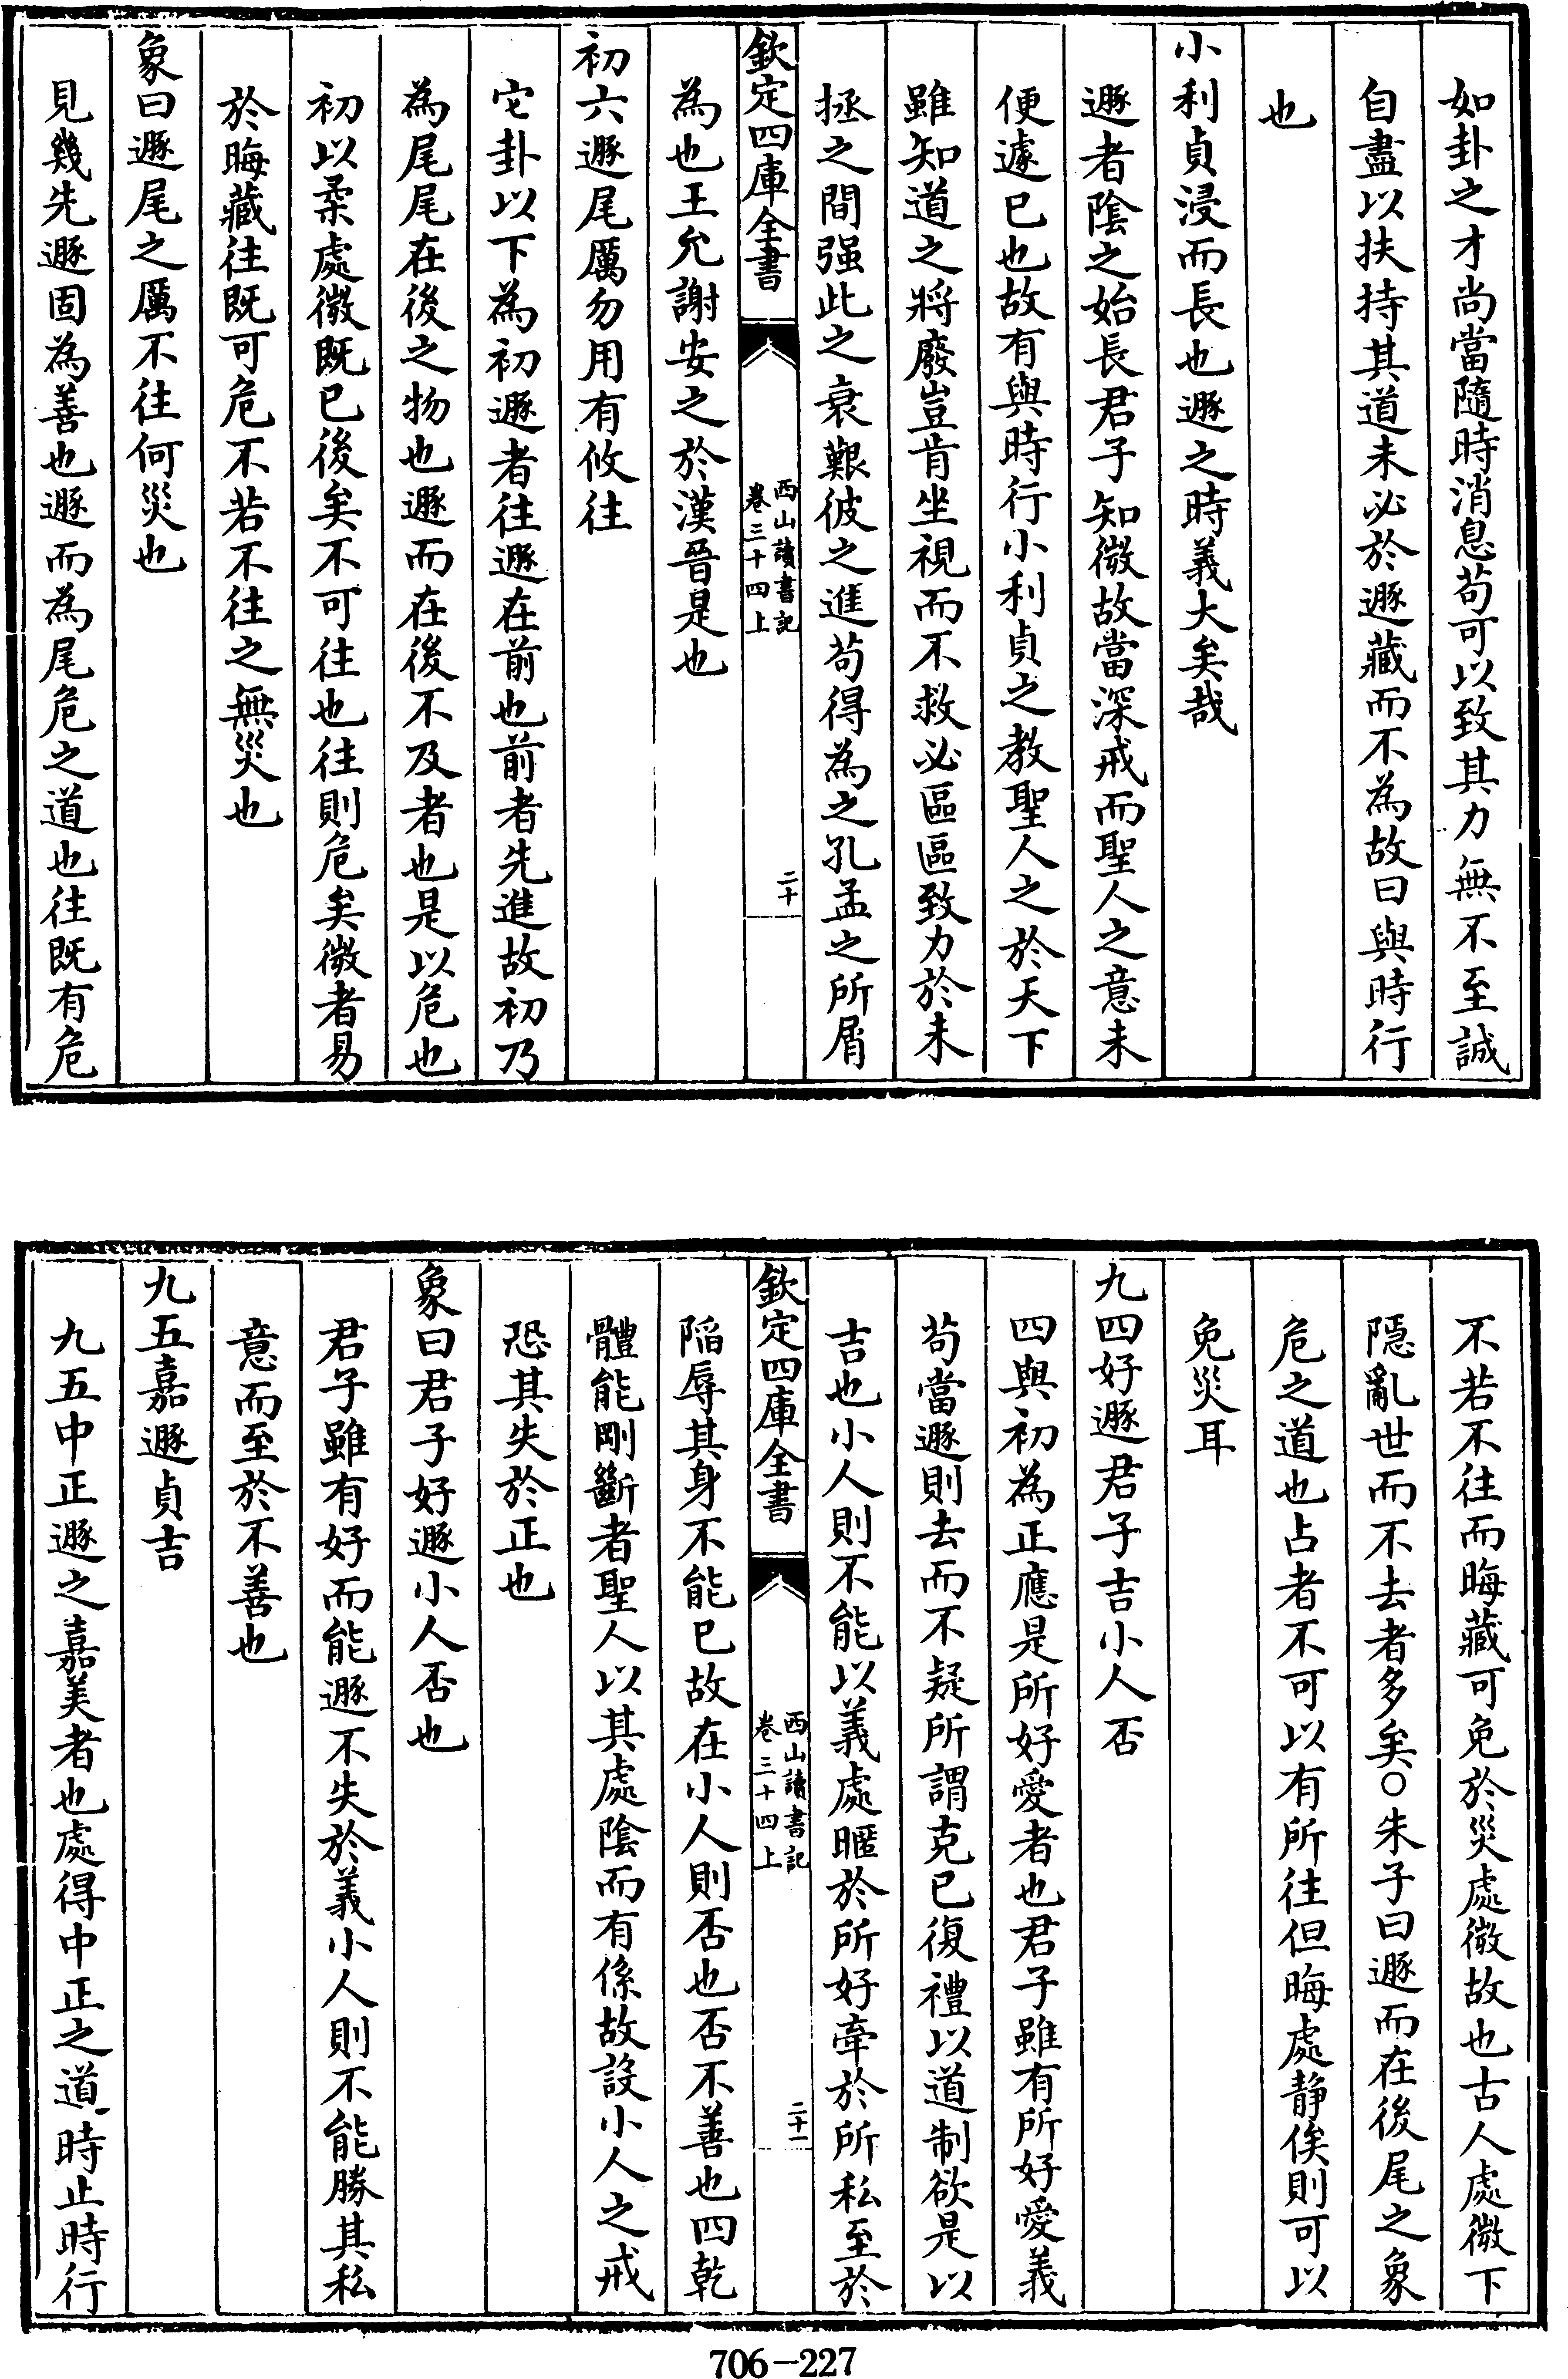 如卦之才尚當隨時消息苟可以致其力無不至誠
自盡以扶持其道未必於遯藏而不為故曰與時行
也
小利貞浸而長也遯之時義大矣哉
遯者陰之始長君子知微故當深戒而聖人之意未
便遽已也故有與時行小利貞之教聖人之於天下
雖知道之將廢豈肯坐視而不救必區區致力於未
拯之間强此之衰艱彼之進苟得為之孔孟之所屑
欽定四庫全書
西山讀書記
卷三十四上
二十
為也王允謝安之於漢晉是也
初六遯尾厲勿用有攸往
它卦以下為初遯者往遯在前也前者先進故初乃
為尾尾在後之物也遯而在後不及者也是以危也
初以柔處微既已後矣不可往也往則危矣微者易
於晦藏往既可危不若不往之無災也
象曰遯尾之厲不往何災也
見幾先遯固為善也遯而為尾危之道也往既有危
不若不往而晦藏可免於災處微故也古人處微下
隱亂世而不去者多矣○朱子曰遯而在後尾之象
危之道也占者不可以有所往但晦處靜俟則可以
免災耳
九四好遯君子吉小人否
四與初為正應是所好愛者也君子雖有所好愛義
苟當遯則去而不疑所謂克已復禮以道制欲是以
吉也小人則不能以義處暱於所好牽於所私至於
欽定四庫全書
西山讀書記
卷三十四上
二十一
陷辱其身不能已故在小人則否也否不善也四乾
體能剛斷者聖人以其處陰而有係故設小人之戒
恐其失於正也
象曰君子好遯小人否也
君子雖有好而能遯不失於義小人則不能勝其私
意而至於不善也
九五嘉遯貞吉
九五中正遯之嘉美者也處得中正之道時止時行
706-227